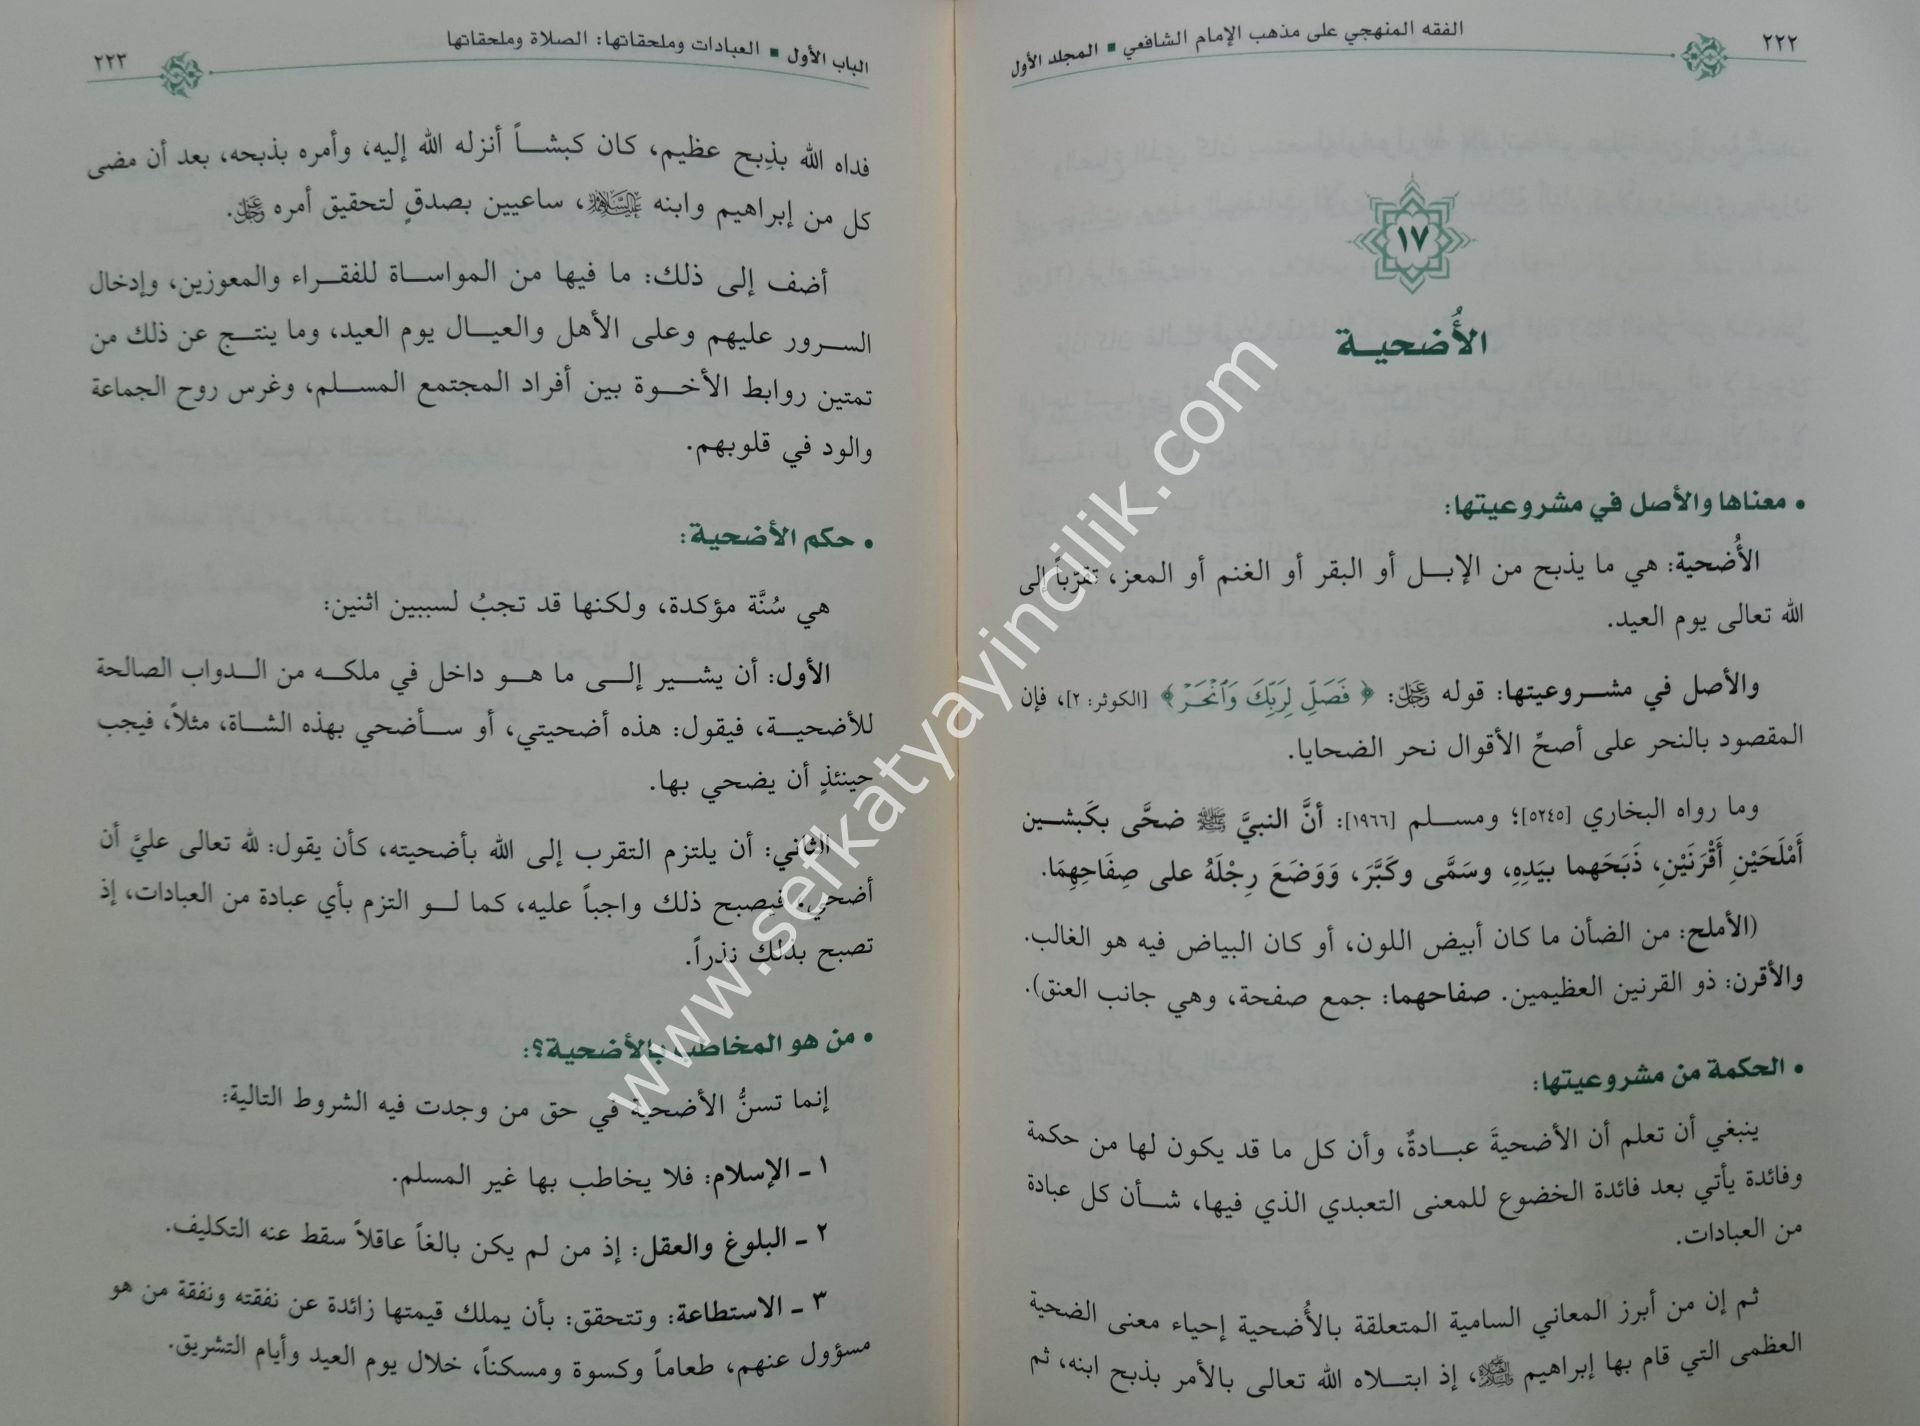 ٢٢٢
الفقه المنهجي على مذهب الإمام الشافعي ▪ المجلد الأول
١٧
الأُضحيـة
• معناها والأصل في مشروعيتها:
الأُضحية: هي ما يذبح من الإبـل أو البقر أو الغنم أو المعز، تقرّباً إلى
الله تعالى يوم العيد.
والأصل في مشـروعيتها: قوله ﷿: ﴿ فَصَلِّ لِرَبِّكَ وَٱنْحَرْ ﴾ [الكوثر: ٢]، فإن
المقصود بالنحر على أصحِّ الأقوال نحر الضحايا.
وما رواه البخاري [٥٢٤٥]؛ ومسـلم [١٩٦٦]: أنَّ النبيَّ ﷺ ضحَّى بكَبشـين
أَمْلَحَيْنِ أَقْرَنَيْنِ، ذَبَحَهما بيَدِهِ، وسَمَّى وكَبَّرَ، وَوَضَعَ رِجْلَهُ على صِفَاحِهِمَا.
(الأملح: من الضأن ما كان أبيض اللون، أو كان البياض فيه هو الغالب.
والأقرن: ذو القرنين العظيمين. صفاحهما: جمع صفحة، وهي جانب العنق).
• الحكمة من مشروعيتها:
ينبغي أن تعلم أن الأضحيةَ عبـادةٌ، وأن كل ما قد يكون لها من حكمة
وفائدة يأتي بعد فائدة الخضوع للمعنى التعبدي الذي فيها، شـأن كل عبادة
من العبادات.
ثم إن من أبرز المعاني السامية المتعلقة بالأُضحية إحياء معنى الضحية
العظمى التي قام بها إبراهيم عليه الصلاة والسلام، إذ ابتـلاه الله تعالى بالأمر بذبح ابنه، ثم
الباب الأول ▪ العبادات وملحقاتها: الصلاة وملحقاتها
٢٢٣
فداه الله بذِبح عظيم، كان كبشـاً أنزله الله إليه، وأمره بذبحه، بعد أن مضى
كل من إبراهيم وابنه عليهما السلام، ساعيين بصدقٍ لتحقيق أمره ﷿.
أضف إلى ذلك: ما فيها من المواسـاة للفقـراء والمعوزين، وإدخال
السـرور عليهم وعلى الأهل والعيـال يوم العيد، وما ينتـج عن ذلك من
تمتين روابط الأخـوة بين أفراد المجتمع المسـلم، وغرس روح الجماعة
والود في قلوبهم.
• حكم الأضحية:
هي سُنَّة مؤكدة، ولكنها قد تجبُ لسببين اثنين:
الأول: أن يشـير إلـى ما هـو داخل في ملكـه من الـدواب الصالحة
للأضحيـة، فيقول: هذه أضحيتي، أو سـأضحي بهذه الشـاة، مثلاً، فيجب
حينئذٍ أن يضحي بها.
الثاني: أن يلتزم التقرب إلى الله بأضحيته، كأن يقول: لله تعالى عليَّ أن
أضحي. فيصبح ذلك واجباً عليه، كما لـو التزم بأي عبادة من العبادات، إذ
تصبح بذلك نذراً.
• من هو المخاطب بالأضحية؟:
إنما تسنُّ الأضحية في حق من وجدت فيه الشروط التالية:
١ ـ الإسلام: فلا يخاطب بها غير المسلم.
٢ ـ البلوغ والعقل: إذ من لم يكن بالغاً عاقلاً سقط عنه التكليف.
٣ ـ الاستطاعة: وتتحقق: بأن يملك قيمتها زائدة عن نفقته ونفقة من هو
مسؤول عنهم، طعاماً وكسوة ومسكناً، خلال يوم العيد وأيام التشريق.
www.sefkatyayincilik.com